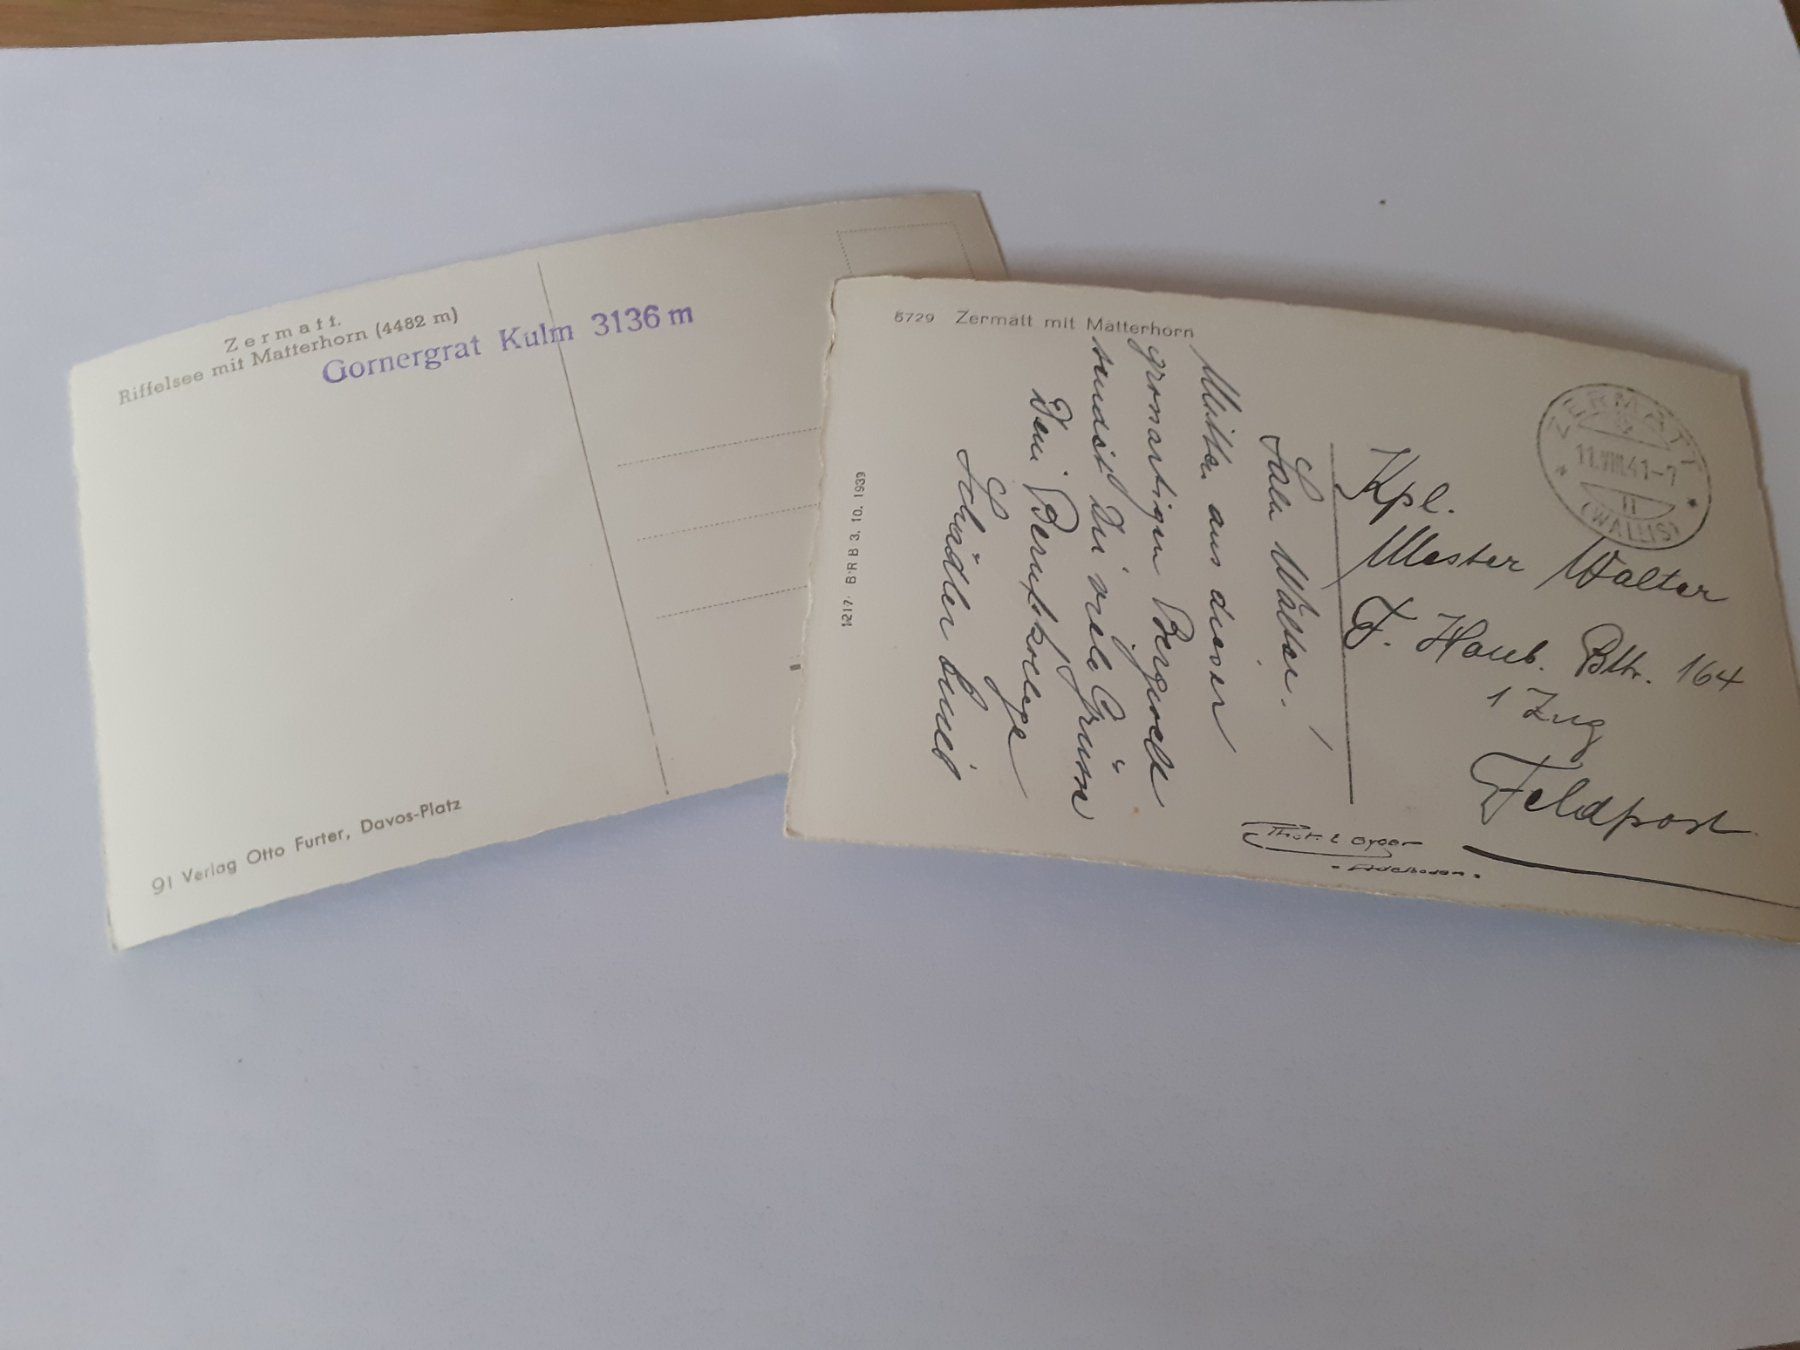 Zermatt.
Riffelsee mit Matterhorn (4482 m)
Gornergrat Kulm 3136 m
91 Verlag Otto Furter, Davos-Platz
5729 Zermatt mit Matterhorn
1217 B R B 3. 10. 1939
Walter!
Mitten aus dieser
grossartigen Bergwelt
sendet Dir viele Grüsse
Dein Berufskollege
Schädler
ZERMATT
11.VIII.41-7
(WALLIS)
Kpl.
Mester Walter
F. Haub. Bttr. 164
1 Zug
Feldpost
Phot. E. Gyger
Adelboden